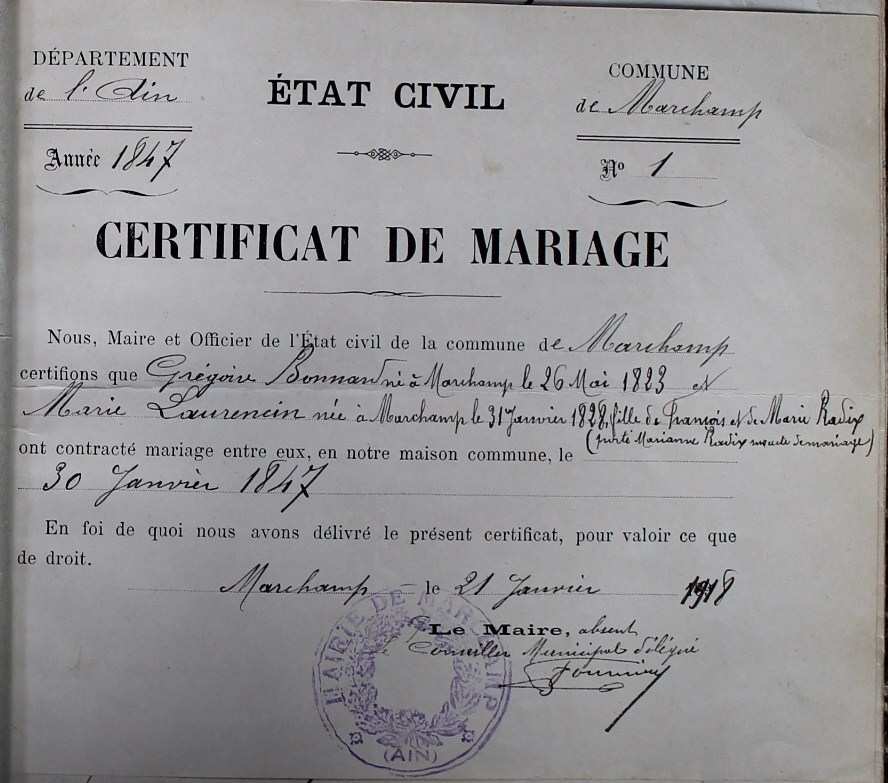 DÉPARTEMENT
de l'Ain
ÉTAT CIVIL
COMMUNE
de Marchamp
Année 1847
No 1
CERTIFICAT DE MARIAGE
Nous, Maire et Officier de l'État civil de la commune de Marchamp
certifions que Grégoire Bonnard né à Marchamp le 26 Mai 1823 et
Marie Laurencin née à Marchamp le 31 Janvier 1828, fille de François et de Marie Radix
(porté Marianne Radix sur acte de mariage)
ont contracté mariage entre eux, en notre maison commune, le
30 Janvier 1847
En foi de quoi nous avons délivré le présent certificat, pour valoir ce que
de droit.
Marchamp le 21 Janvier 1918
Le Maire, absent
Le Conseiller Municipal délégué
MAIRIE DE MARCHAMP
(AIN)